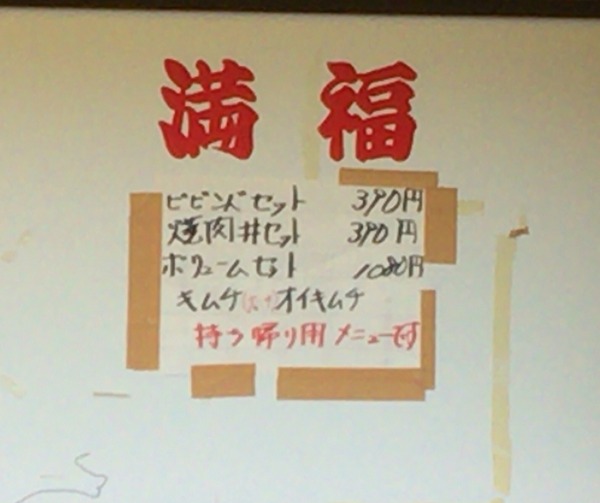 満福
ビビンバセット 390円
焼肉丼セット 390円
ボリュームセット 1080円
キムチ オイキムチ
持ち帰り用メニュー付